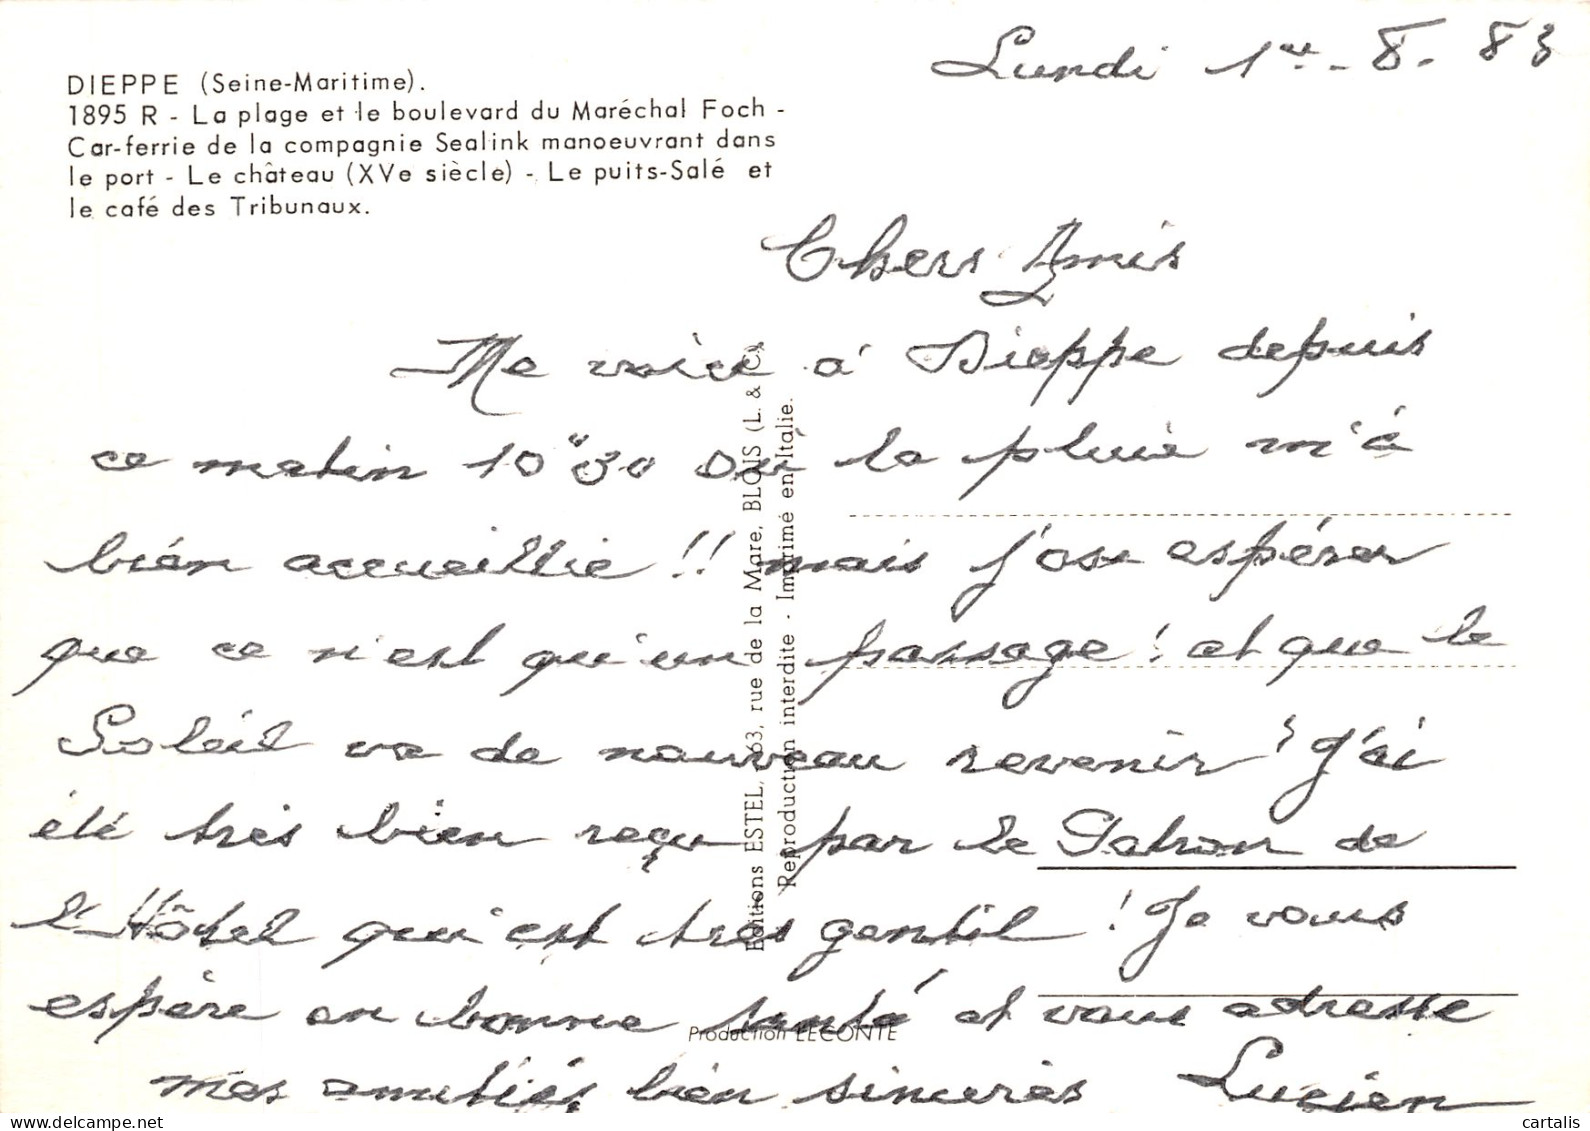 Lundi 1er - 8. 83
DIEPPE (Seine-Maritime).
1895 R - La plage et le boulevard du Maréchal Foch -
Car-ferrie de la compagnie Sealink manoeuvrant dans
le port - Le château (XVe siècle) - Le puits-Salé et
le café des Tribunaux.
Chers Amis
Me voici à Dieppe depuis
ce matin 10H30 où la pluie m'à
bién accueillie !! mais j'ose espérer
que ce n'est qu'un passage ! et que le
Soleil va de nouveau revenir ! J'ai
été très bien reçu par le Patron de
l'Hôtel qui est très gentil ! Je vous
espère en bonne santé et vous adresse
mes amitiés bién sincerès Lucien
Editions ESTEL, 63, rue de la Mare, BLOIS (L. & C.)
Reproduction interdite - Imprimé en Italie.
Production LECONTE
delcampe.net
cartalis